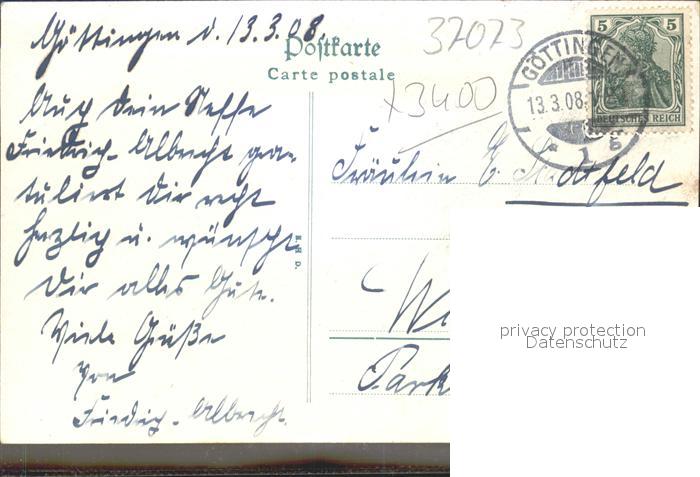 Göttingen d. 13.3.08.
Postkarte
Carte postale
37073
x3400
GÖTTINGEN
13.3.08.
* 1 g
5 5
DEUTSCHES REICH
Auch Dein Neffe
Friedrich-Albrecht gra-
tuliert Dir recht
herzlich u. wünscht
Dir alles Gute.
Viele Grüße
von
Friedrich-Albrecht.
Fräulein E.
privacy protection
Datenschutz